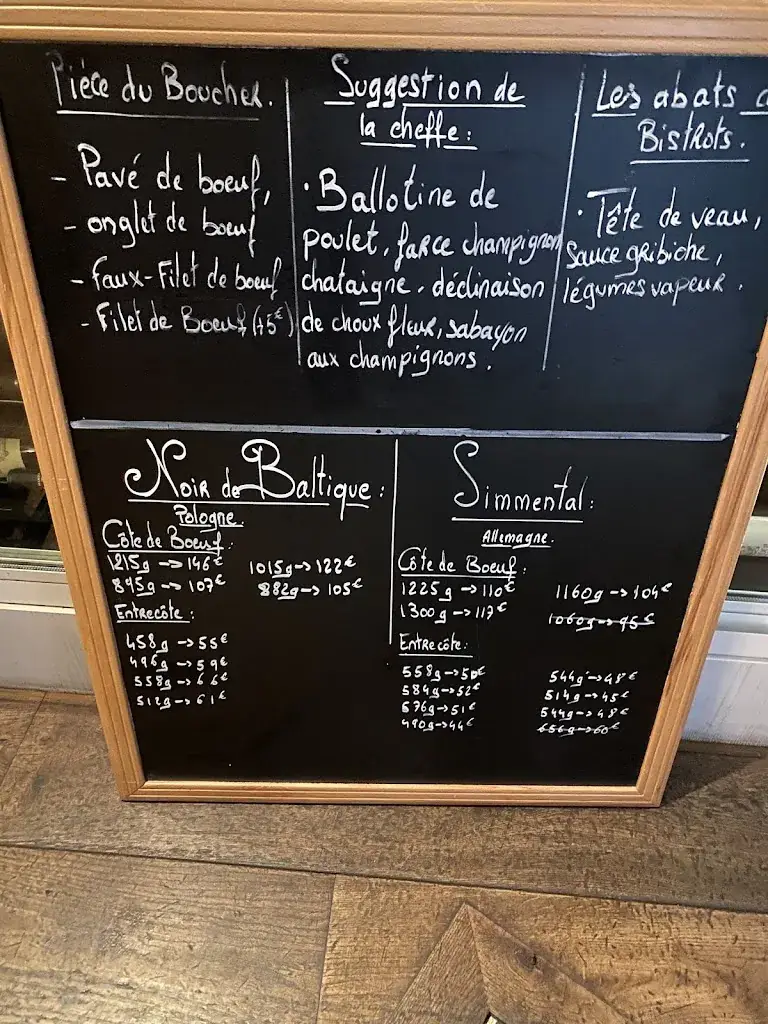 Piéce du Boucher.
- Pavé de boeuf,
- onglet de boeuf
- Faux-Filet de boeuf
- Filet de Boeuf (45€)
Suggestion de
la cheffe :
· Ballotine de
poulet, farce champignon
chataigne, déclinaison
de choux fleur, sabayon
aux champignons.
Les abats
Bistrots.
· Tête de veau,
Sauce gribiche,
légumes vapeur.
Noir de Baltique :
Pologne.
Côte de Boeuf :
1215g → 146€ 1015g → 122€
895g → 107€ 882g → 105€
Entrecôte :
458g → 55€
496g → 59€
558g → 66€
512g → 61€
Simmental :
Allemagne.
Côte de Boeuf :
1225g → 110€ 1160g → 104€
1300g → 117€ 1060g → 95€
Entrecôte :
558g → 50€ 544g → 48€
584g → 52€ 514g → 45€
576g → 51€ 544g → 48€
490g → 44€ 656g → 60€